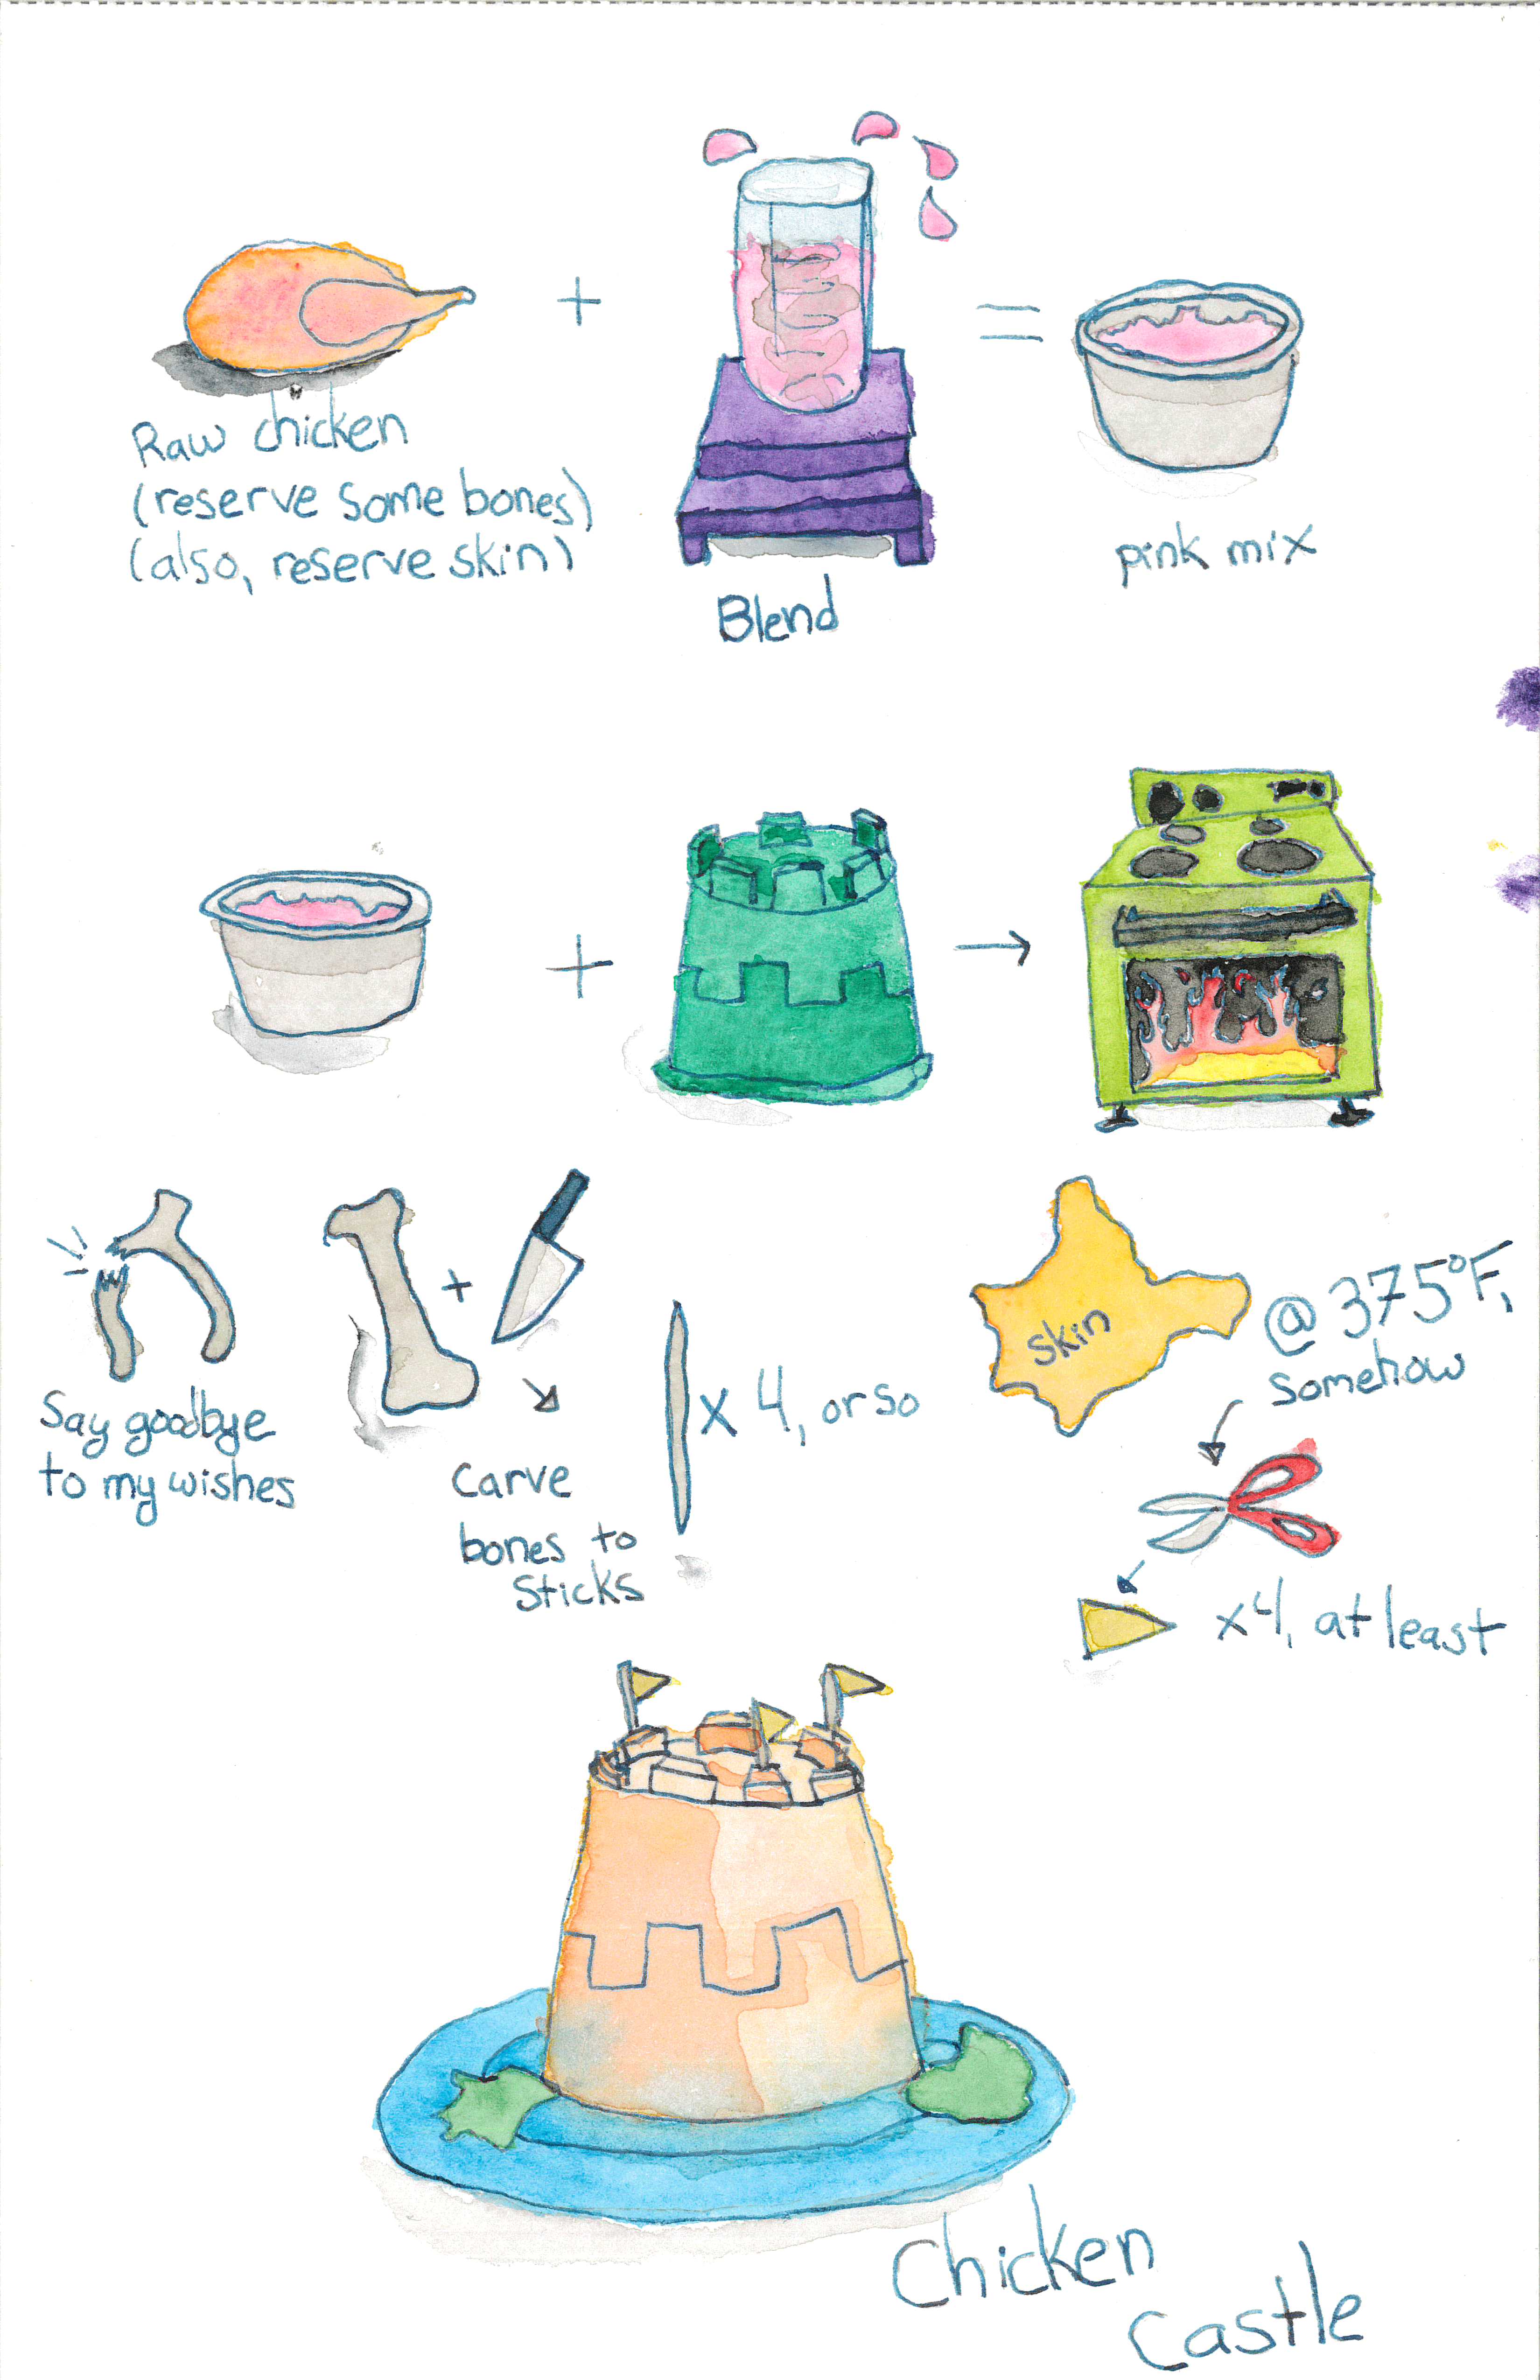 Raw chicken
(reserve some bones)
(also, reserve skin)
+
Blend
=
pink mix
+
Say goodbye
to my wishes
+
carve
bones to
sticks
x 4, or so
skin
@ 375°F,
somehow
x4, at least
Chicken
Castle